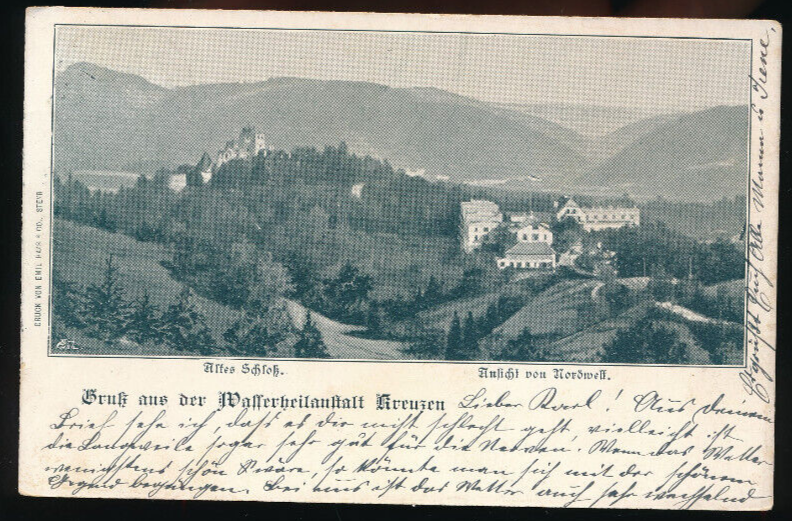 DRUCK VON EMIL HAAS & CO., STEYR
Altes Schloß.
Ansicht von Nordwest.
Gruß aus der Wasserheilanstalt Kreuzen
Lieber Karl! Aus deinem
Brief sehe ich, dass es dir nicht schlecht geht, vielleicht ist
die Langweile sogar sehr gut für die Nerven. Wenn das Wetter
wenigstens schön wäre, so könnte man sich mit der schönen
Gegend begnügen. Bei uns ist das Wetter auch sehr wechselnd
Mama u Irene,